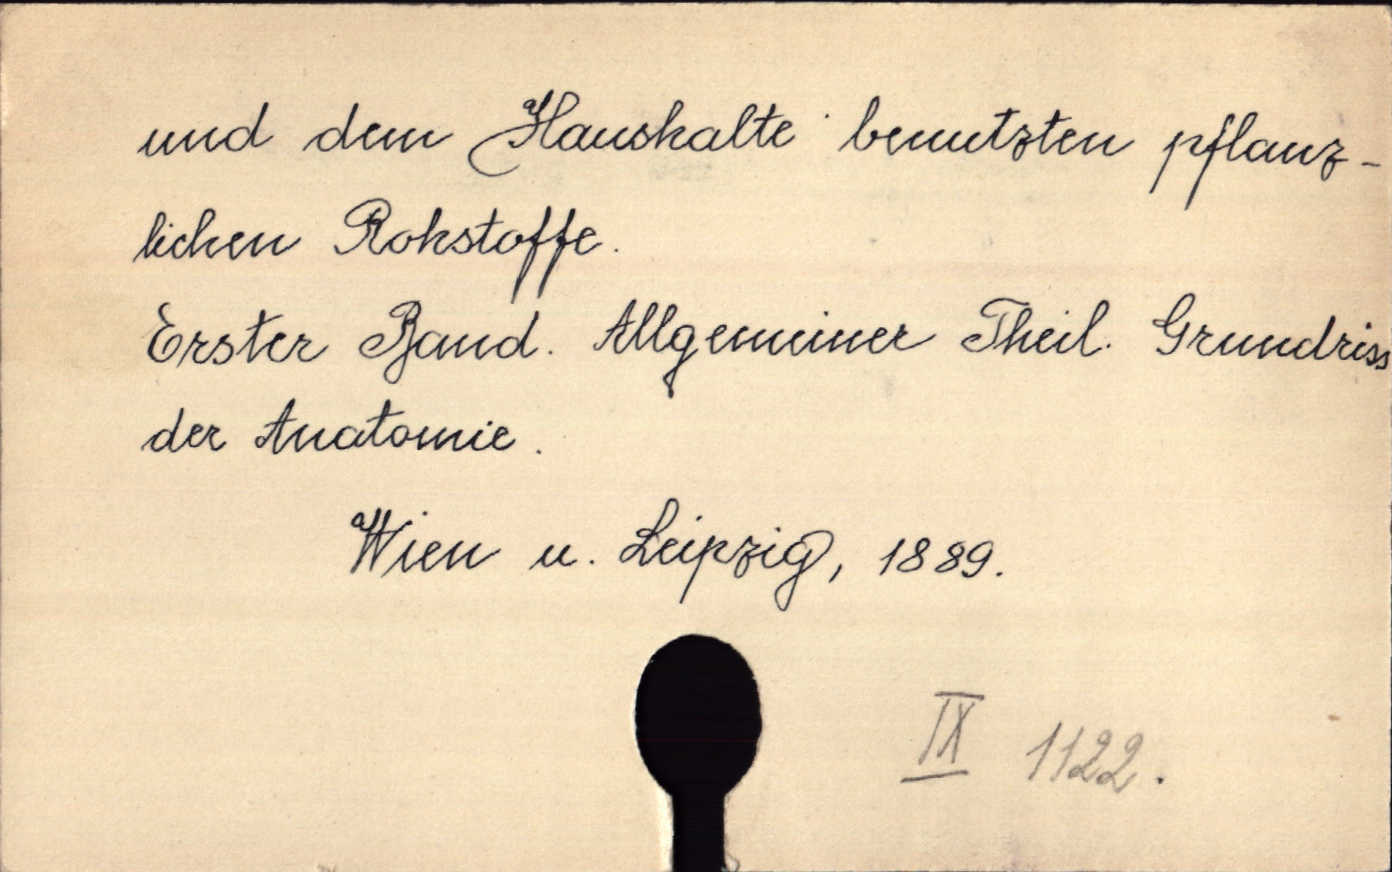 und dem Haushalte benutzten pflanz-
lichen Rohstoffe.
Erster Band. Allgemeiner Theil. Grundriss
der Anatomie.
Wien u. Leipzig, 1889.
IX 1122.